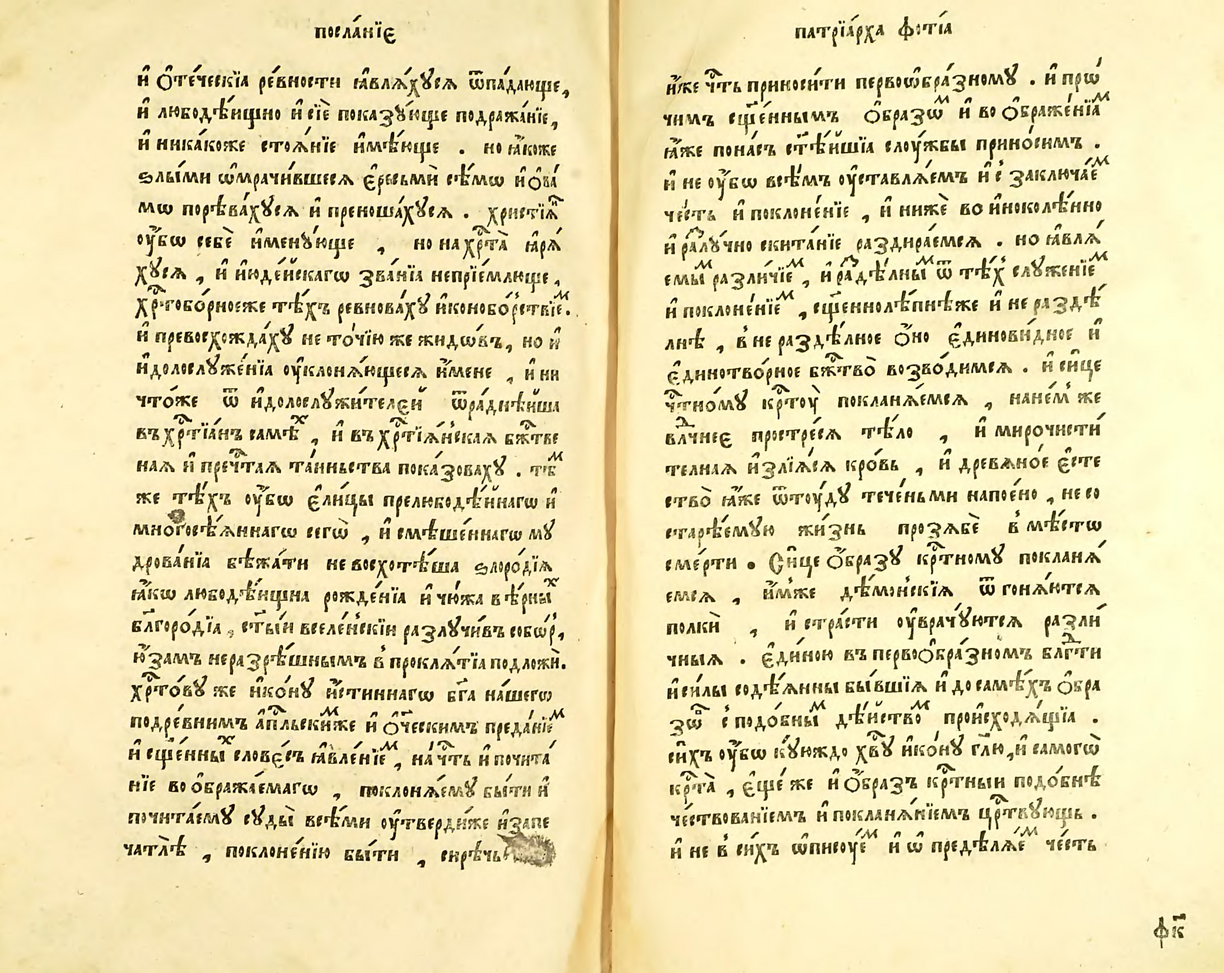 посла́нїє
и҆ ѻ҆те́ческїа ре́вности ꙗ҆влѧ́хꙋсѧ ѿпа́дающе,
и҆ любодѣ́ищно и҆ сїѐ показꙋ́юще подража́нїе,
и҆ никакоже стоѧ́нїе и҆мѣ́юще . но ꙗ҆́коже
ѕлы́ми ѡ҆мрачи́вшесѧ є҆ресьмѝ сѣ́мѡ и҆ ѻ҆ва́
мѡ порѣва́хꙋсѧ и҆ преноша́хꙋсѧ . христїѧ̑
ᲂу҆́бѡ себѐ и҆менꙋ́юще , но на хрⷭ҇та̀ ꙗ҆рѧ́
хꙋсѧ , и҆ и҆юде́йскагѡ зва́нїа непрїе́млюще ,
хрⷭ҇тобо́рноеже тѣ́хъ ревнова́хꙋ и҆конобо́рствїеⷨ.
и҆ превосхожда́хꙋ не то́чїю же жидѡ́въ, но и҆
и҆долослꙋже́нїа ᲂу҆клонѧ́ющесѧ и҆́мене , и҆ ни
что́же ѿ и҆долослꙋжи́телєй ѿра́днѣйша
въ хрⷭ҇тїа́нъ самѣⷯ , и҆ въ хрⷭ҇тїѧ́нскаѧ бжⷭ҇тве
наѧ и҆ пречⷭ҇таѧ та́иньства пока́зовахꙋ . тѣⷨ
же тѣ́хъ ᲂу҆́бѡ є҆ли́цы прелюбодѣ́йнагѡ и҆
многосѣ́ѧннагѡ сегѡ̀ , и҆ смѣ́шеннагѡ мꙋ
дрова́нїа бѣжа́ти не восхотѣ́ша ѕлоро́дїѧ
ꙗ҆́кѡ любодѣ́ищна рожде́нїа и҆ чю́жа вѣ́рныⷯ
бл҃горо́дїа , ст҃ы́и вселе́нскїи разлꙋчи́въ собѡ́р,
ю҆́замъ неразрѣ́шнымъ в҆ проклѧ́тїа подложѝ.
хрⷭ҇то́вꙋ же и҆ко́нꙋ и҆́стиннагѡ бг҃а на́шегѡ
подре́внимъ а҆пⷭ҇льскиⷨже и҆ ѻ҆ч҃ескимъ преда́нїеⷨ
и҆ сщ҃е́нныⷯ слове́съ ꙗ҆вле́нїеⷨ , на чⷭ҇ть и҆ почита́
нїе во ѻ҆бража́емагѡ , поклонѧ́емꙋ бы́ти и҆
почита́емꙋ сꙋды̀ всѣ́ми ᲂу҆твердиⷤже и҆ запе
чатлѣ̀ , поклоне́нїю бы́ти , сирѣ́чь
патрїа́рха фо́тїа
и҆́же чⷭ҇ть приноси́ти первоѡбра́зномꙋ . и҆ прѡ́
чимъ сщ҃е́ннымъ ѻ҆́бразѡⷨ и҆ во ѻ҆браже́нїаⷨ
ꙗ҆́же по на́съ ст҃ѣ́йшїа слꙋ́жбы прино́симъ .
и҆ не ᲂу҆́бѡ всѣ́мъ ᲂу҆ставлѧ́емъ и҆ с҆ заключа́еⷨ
че́сть и҆ поклоне́нїе , и҆ нижѐ во и҆ноколѣ́нно
и҆ ра́лꙋчно скита́нїе раздира́емсѧ . но ꙗ҆влѧ́
емыⷨ разли́чїеⷨ , и҆ раⷥдѣ́лныⷨ ѿ тѣ́х слꙋже́нїеⷨ
и҆ поклоне́нїеⷨ , сщ҃еннолѣ́пнѣже и҆ не раздѣ́
лнѣ , в҆ не раздѣ́лное ѻ҆́но є҆динови́дное и҆
є҆динотво́рное бжⷭ҇тво̀ возво́димсѧ . и҆ си́це
чⷭ҇тно́мꙋ крⷭ҇тꙋ̀ покланѧ́емсѧ , на не́м же
влⷣчнєе простре́сѧ тѣ́ло , и҆ мирочисти́
телнаѧ и҆злїѧ́сѧ кро́вь , и҆ древѧ́ное є҆сте
ство̀ ꙗ҆́же ѿтꙋ́дꙋ тече́ньми напое́но , не со
старѣ́емꙋю жи́знь прозѧбѐ в҆ мѣ́стѡ
сме́рти . Си́це ѻ҆́бразꙋ крⷭ҇тномꙋ покланѧ́
емсѧ , и҆́мже де́монскїѧ ѿ гонѧ́ютсѧ
полкѝ , и҆ стра́сти ᲂу҆врачꙋ́ютсѧ разли́
чныѧ . є҆ди́ною въ первоѻбра́зномъ блгⷣти
и҆ си́лы содѣ́ѧнны бы́вшїѧ и҆ до самѣ́хъ ѻ҆бра
зѡ̑ с҆ подо́бныⷨ дѣ́йствоⷨ происходѧ́щїа .
си́хъ ᲂу҆́бѡ кꙋ́юждо хв҃ꙋ и҆ко́нꙋ гл҃ю , и҆ самогѡ̀
крⷭ҇та̀ , є҆ще́ же и҆ ѻ҆́бразъ крⷭ҇тныи подо́бнѣ
че́ствованїемъ и҆ покланѧ́нїемъ црⷭ҇твꙋющь .
и҆ не в҆ си́хъ ѡ҆писꙋ́еⷨ и҆ ѡ҆ предѣлѧ́еⷨ че́сть
фк҃